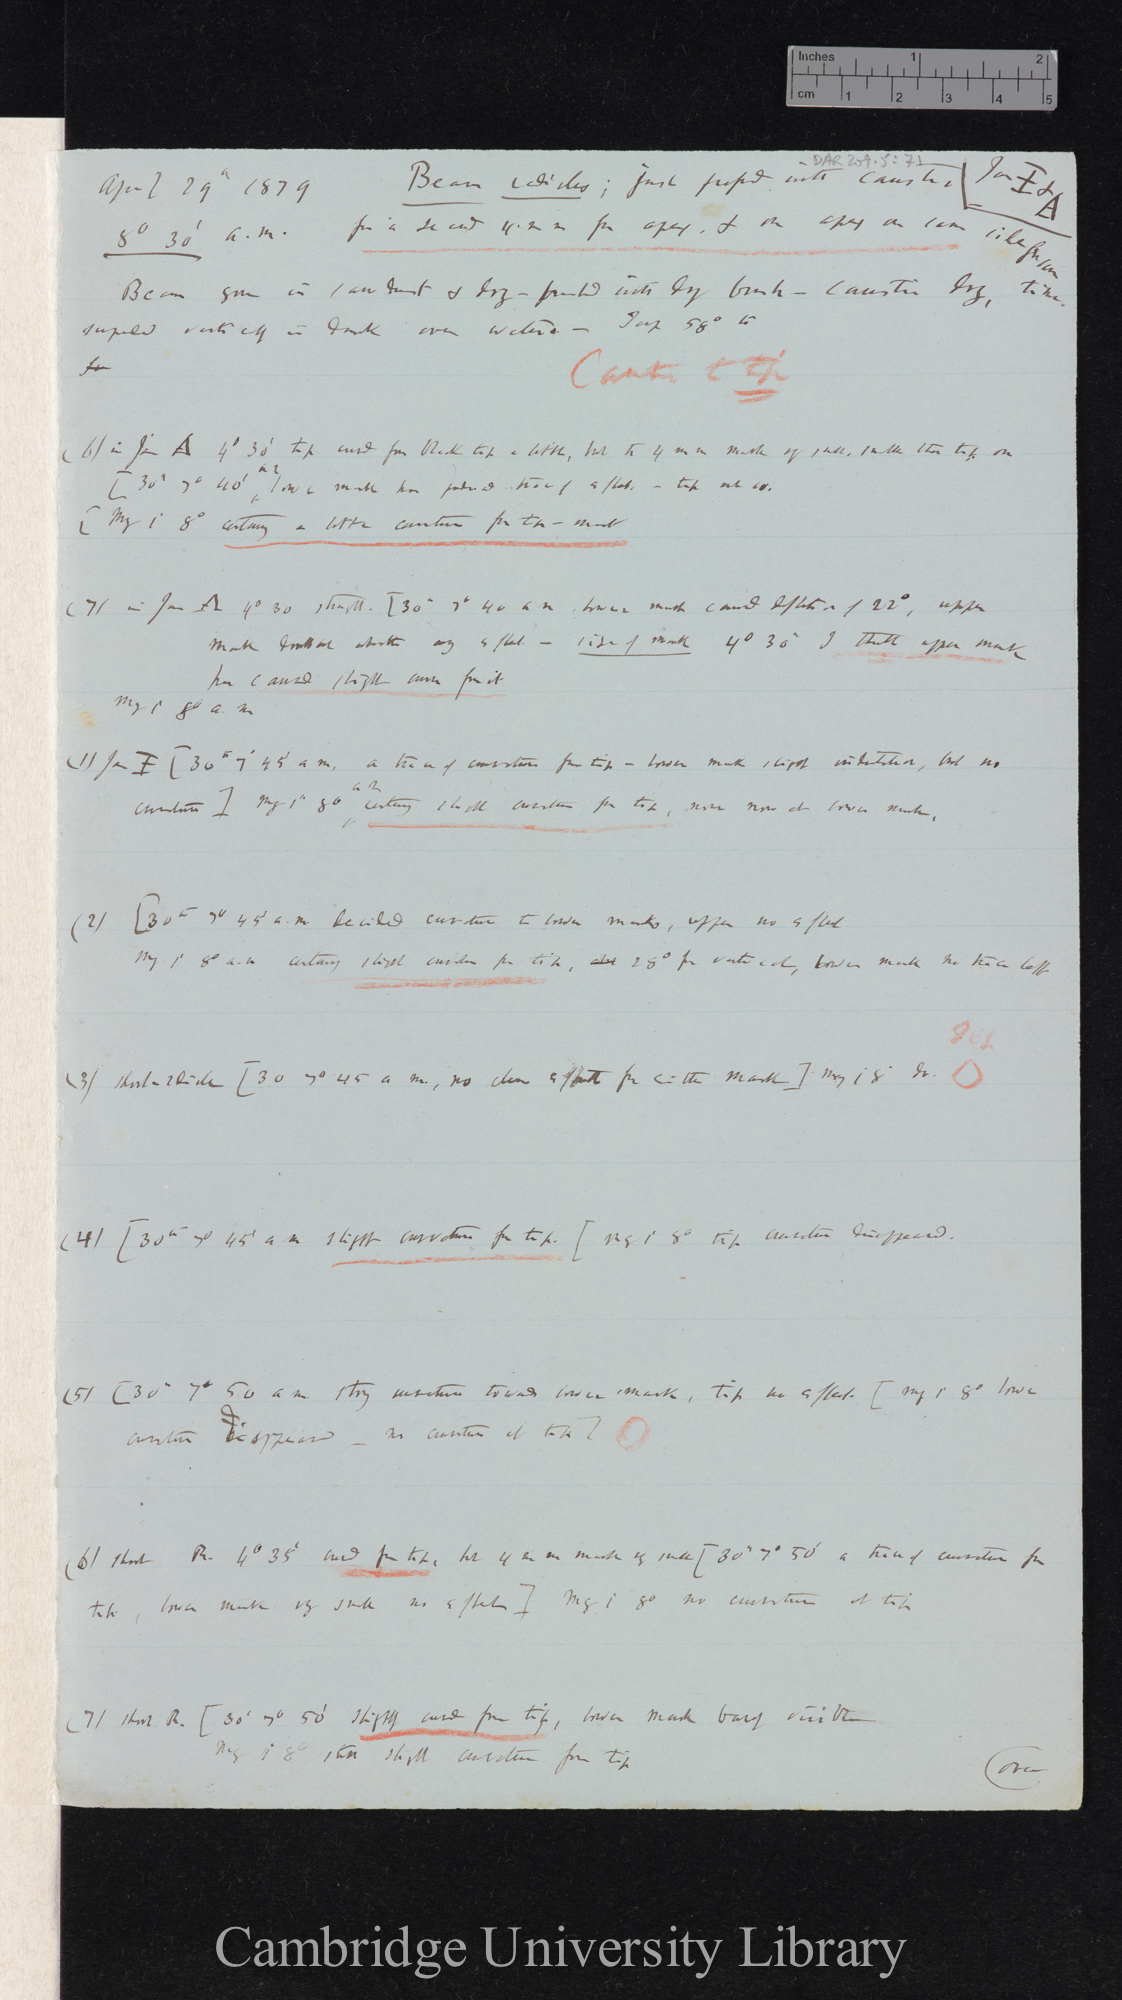 Inches 1 2
cm 1 2 3 4 5
DAR 209.5: 71
April 29th 1879 Bean radicles; just with caustic Jar I & A
8° 30' a.m. for a second 4 m m from apex, & on apex on same side for same time.
Bean grown in & dry — with dry brush — Caustic dry,
vertically in dark over water — Temp 58° to
Caustic to tip
(6) in Jar A 4° 30' tip curved from black tip a little, but the 4 m m mark on
[30th 7° 40' a m lower mark has trace of effect — tip not so.
[May 1 8° certainly a little curvature from tip — mark
(7) in Jar A 4° 30 straight. [30th 7° 40 a m lower mark caused deflection of 22°, upper
mark doubtful whether any effect — side of mark 4° 30' I think upper mark
has caused slight curve from it
May 1 8° a m
(1) Jar I [30th 7° 45' a m, a trace of curvature from tip — lower mark slight indentation, but no
curvature] May 1st 8° a m certainly slight curvature from tip, none now at lower mark.
(2) [30th 7° 45' a.m decided curvature to lower marks, upper no effect
May 1 8° a.m certainly slight curvature from tip, 28° from vertical, lower mark no trace left
(3) short radicle [30 7° 45 a m, no clear effect from either mark] May 1 8° do.
(4) [30th 7° 45' a m slight curvature from tip. [May 1 8° tip curvature disappeared.
(5) [30th 7° 50 a m strong curvature towards lower mark, tip no effect [May 1 8° lower
curvature disappeared — no curvature at tip] O
(6) short R. 4° 35' curved from tip, but 4 m m mark [30th 7° 50' a trace of curvature from
tip, lower mark no effect] May 1 8° no curvature at tip
(7) short R. [30' 7° 50' slightly curved from tip, lower mark barely visible
May 1 8° still slight curvature from tip
over
Cambridge University Library